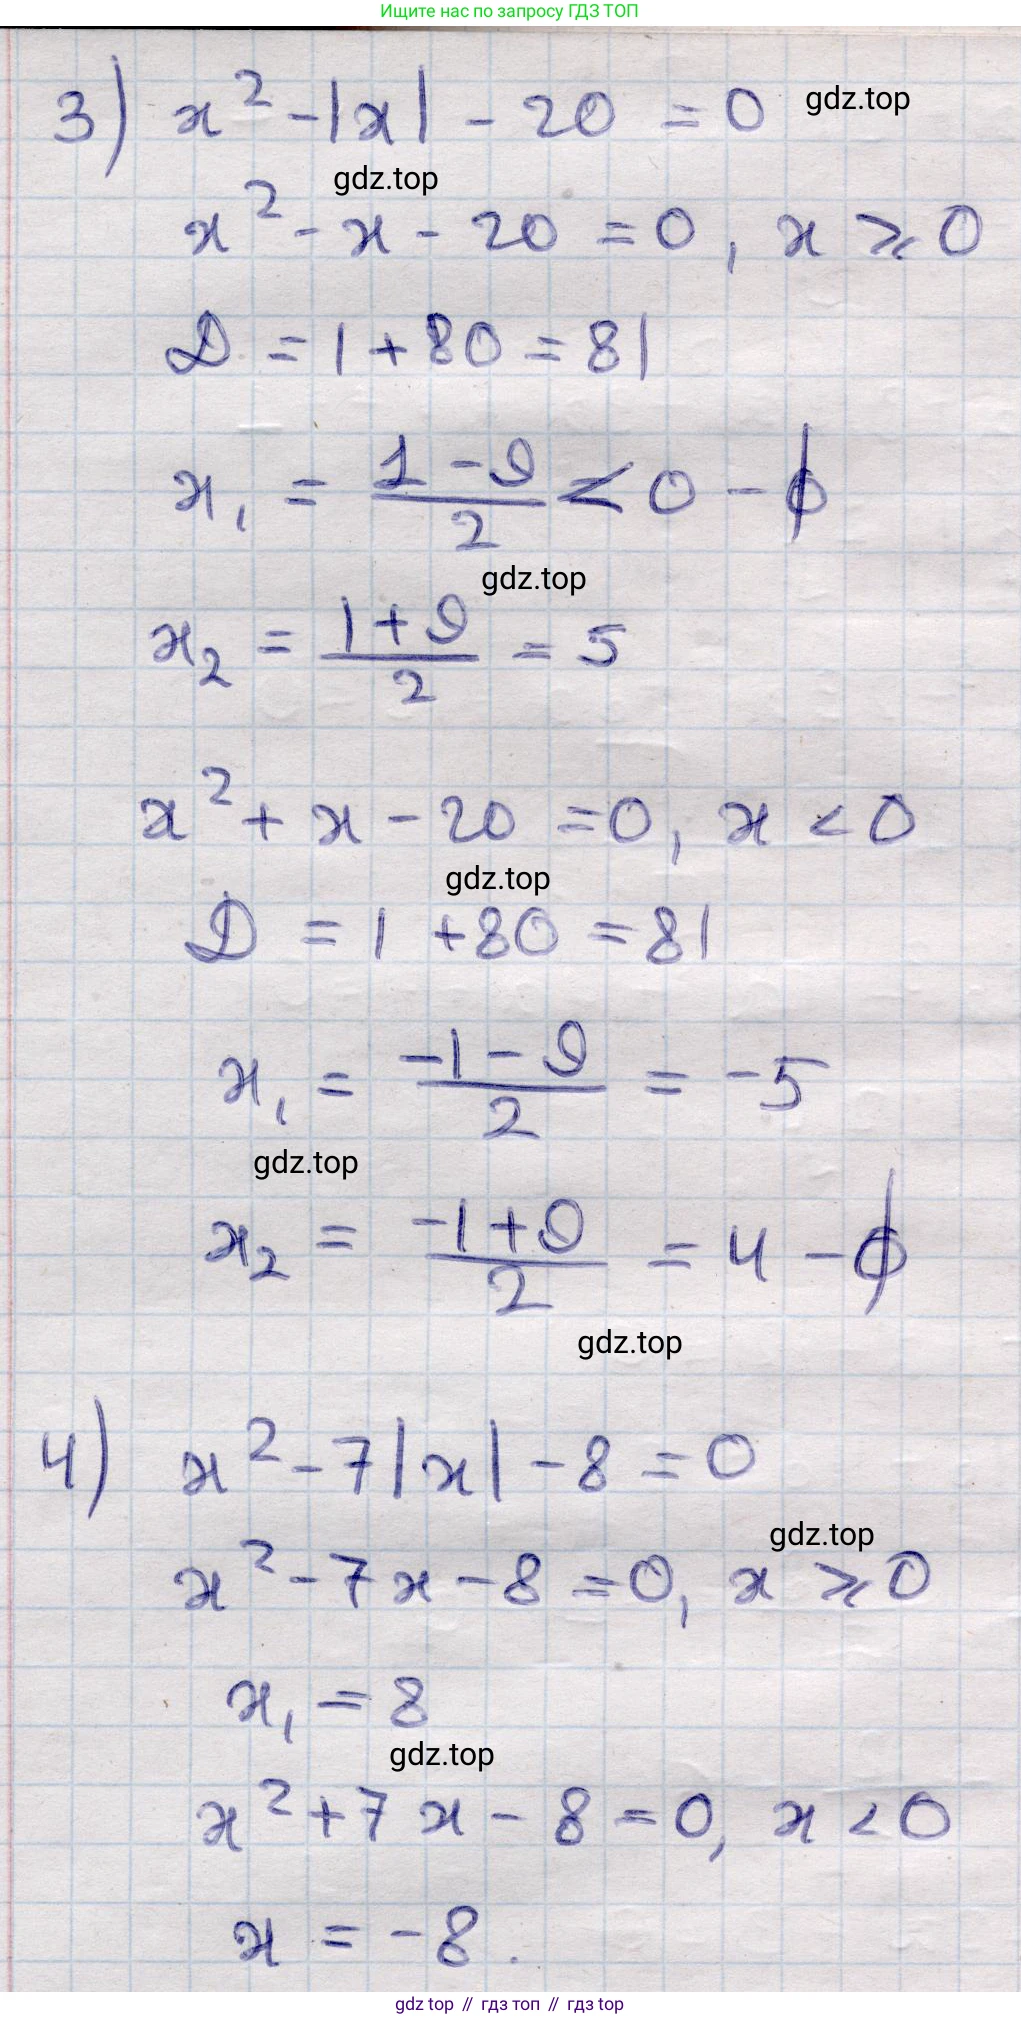 Ищите нас по запросу ГДЗ ТОП
3) x² - |x| - 20 = 0 gdz.top
gdz.top
x² - x - 20 = 0, x ⩾ 0
D = 1 + 80 = 81
x₁ = (1 - 9)/2 < 0 - ϕ
gdz.top
x₂ = (1 + 9)/2 = 5
x² + x - 20 = 0, x < 0
gdz.top
D = 1 + 80 = 81
x₁ = (-1 - 9)/2 = -5
gdz.top
x₂ = (-1 + 9)/2 = 4 - ϕ
gdz.top
4) x² - 7|x| - 8 = 0
gdz.top
x² - 7x - 8 = 0, x ⩾ 0
x₁ = 8
gdz.top
x² + 7x - 8 = 0, x < 0
x = -8.
gdz top // гдз топ // gdz top